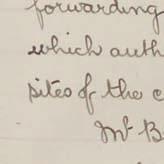 forwarding
which auth
sites of the c
Mr B